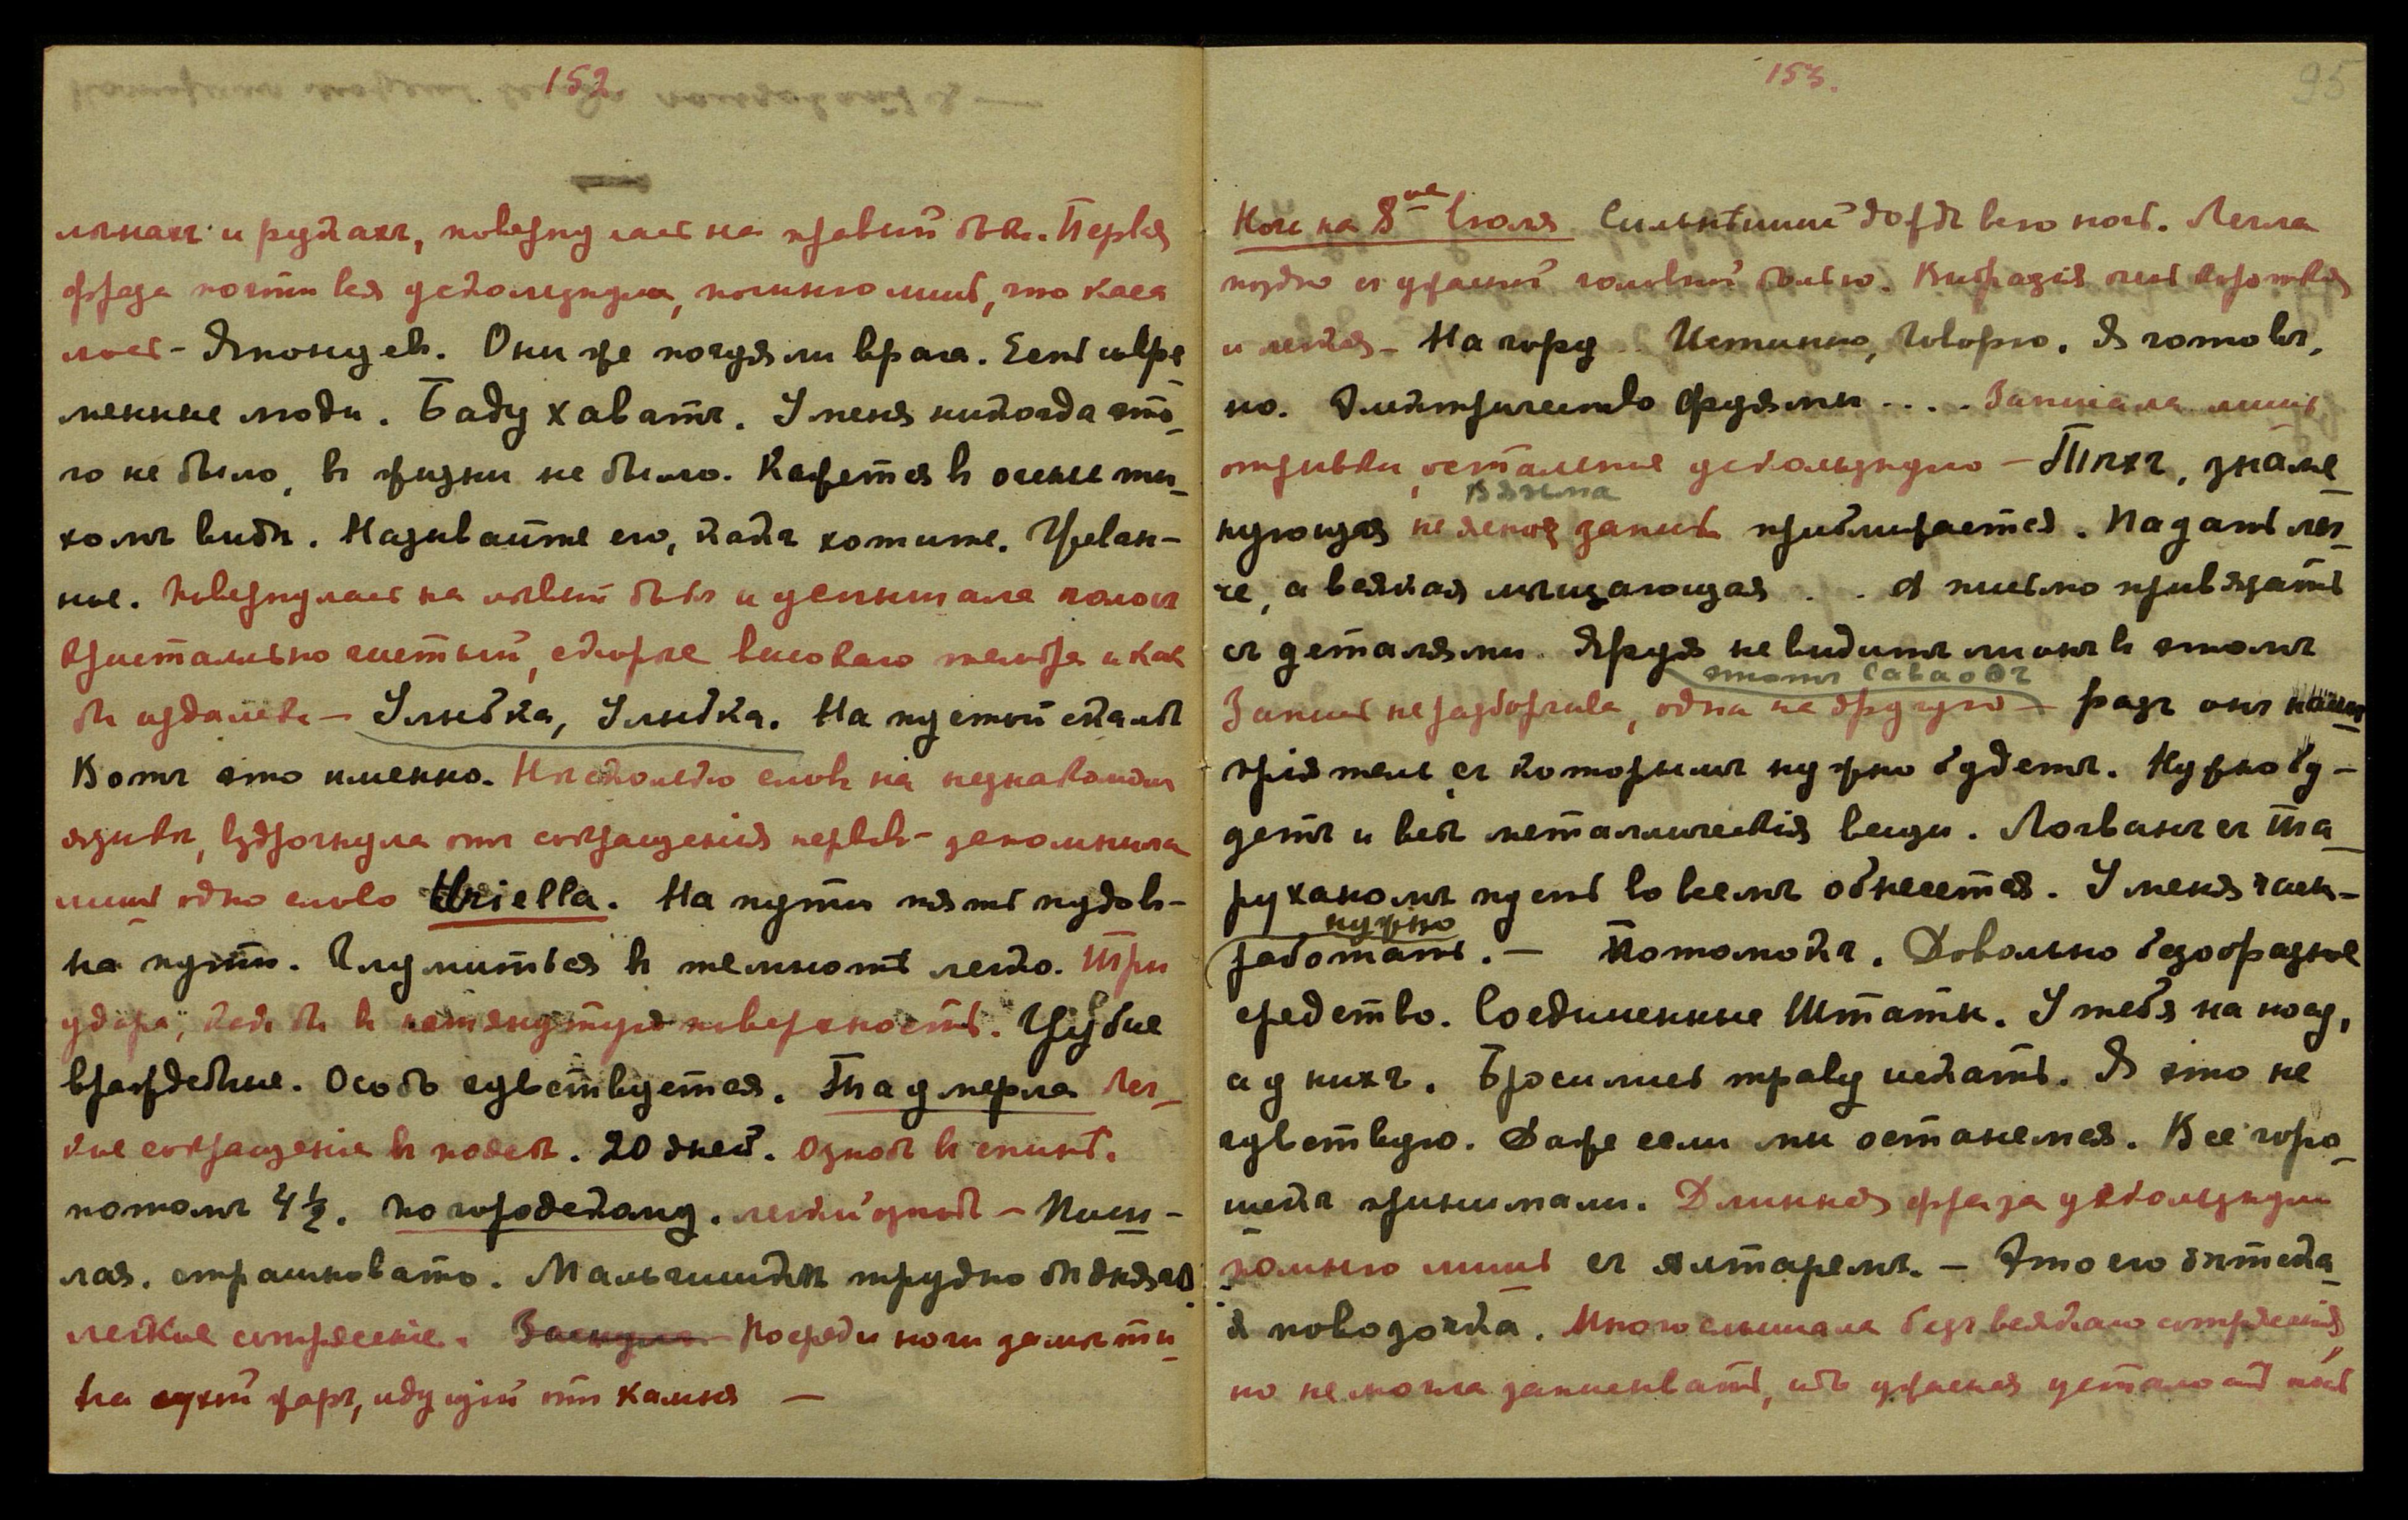 152
лѣнахъ и рукахъ, повернулась на правый бокъ. Первая
фраза почти вся ускользнула, помню лишь, что каса
лось - Японцевъ. Они же почуяли врага. Есть совре
менные люди. Баду хаватъ. У меня никогда это_
го не было, въ жизни не было. Кажется въ очень ти_
хомъ видѣ. Называйте его, какъ хотите. Уреван-
ное. Повернулась на лѣвый бокъ и услышала голосъ
кристально чистый, скорѣе высокаго тембра и как
бы издалека — Улыбка, Улыбка. На пустой скалѣ
Вотъ это именно. Нѣсколько словъ на незнакомомъ
языкѣ, вздрогнула отъ сокращенія нервовъ - запомнила
лишь одно слово Uriella. На пути пять пудовъ-
на пути. Глумиться въ темнотѣ легко. Три
удара, какъ бы въ натянутую поверхность. Грубые
враждебные. Особо чувствуется. Та умерла Лег_
кое сокращеніе въ поясѣ. 20 дней. Ознобъ въ спинѣ.
потомъ 4½. По городскому. легкій ознобъ - Посы-
лая. страшновато. Мальчишкѣ трудно
легкое сотрясеніе. Посреди ночи замѣти_
ла сухой жаръ, идущій отъ камня —
153.
95
Ночь на 8ое Іюля Сильнѣйшій дождь всю ночь. Легла
поздно съ ужасной головной болью. Вибрація очень короткая
и легкая - На гору .. Истинно, говорю. Я готовъ,
но. Электричество друзьями .... Записала лишь
отрывки, остальное ускользнуло — Тѣхъ, знаме_
Вязьма
нующая не ясная запись приближается. Падать лег_
че, а всякая мѣщающая . . А письмо привязать
съ деталями. Друзья не видитъ въ этомъ
этотъ Саваоѳъ
Запись неразборчива, одна на другую — разъ онъ нашъ
пріятель съ которымъ нужно будетъ. Нужно бу-
детъ и всѣ металлическія вещи. Логванъ съ Та_
руханомъ пусть во всемъ обнесется. У меня
нужно
работать. — Потомокъ. Довольно безобразное
средство. Соединенные Штаты. У тебя на носу,
а у нихъ. Бросились траву искать. Я это не
чувствую. Даже если мы останемся. Все горо_
шекъ принимали. Длинная фраза ускользнула
помню лишь съ алтаремъ. — Это его
я повозочка. Много слышала безъ всякаго сотрясенія,
но не могла записывать, ибо ужасная усталость